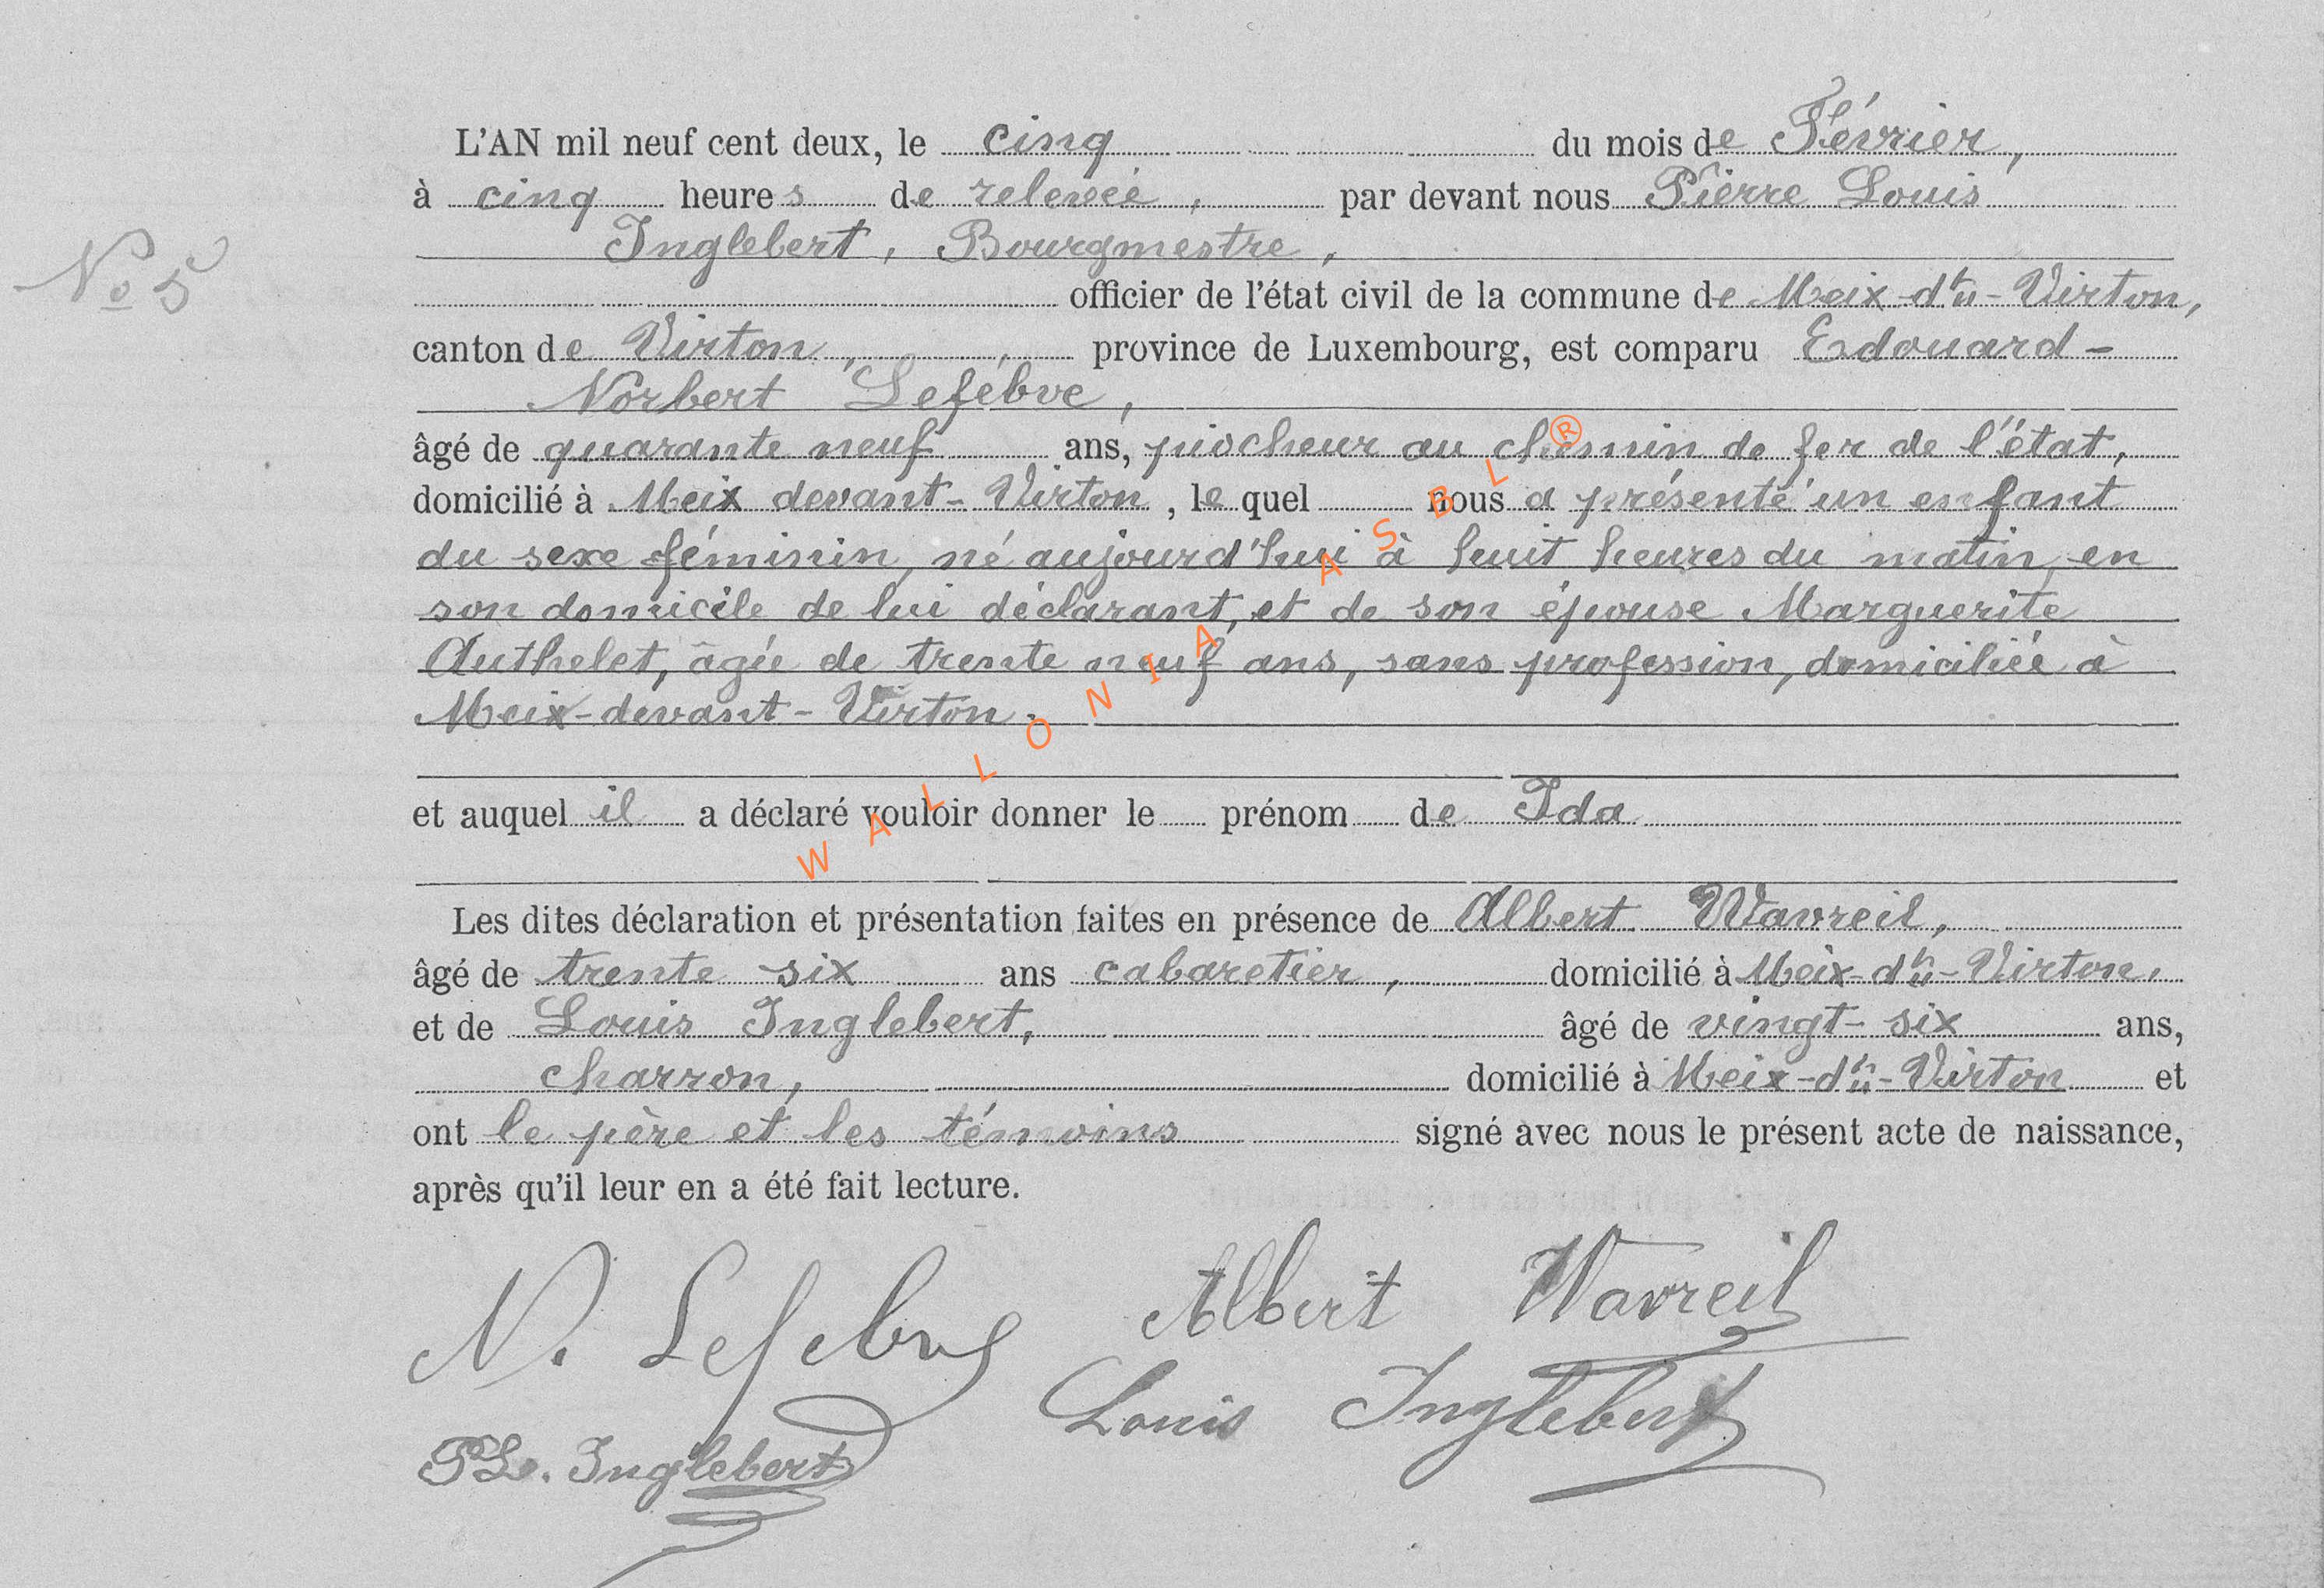 L'AN mil neuf cent deux, le cinq du mois de Février,
à cinq heures de relevée, par devant nous Pierre Louis
Inglebert, Bourgmestre,
N° 5
officier de l'état civil de la commune de Meix-dt-Virton,
canton de Virton, province de Luxembourg, est comparu Edouard-
Norbert Lefébve,
âgé de quarante neuf ans, piocheur au chemin de fer de l'état,
domicilié à Meix devant-Virton, le quel nous a présenté un enfant
du sexe féminin, né aujourd'hui à huit heures du matin, en
son domicile de lui déclarant, et de son épouse Marguerite
Authelet, âgée de trente neuf ans, sans profession, domiciliée à
Meix-devant-Virton.
et auquel il a déclaré vouloir donner le prénom de Ida
Les dites déclaration et présentation faites en présence de Albert Wavreil,
âgé de trente six ans cabaretier, domicilié à Meix-dt-Virton,
et de Louis Inglebert, âgé de vingt-six ans,
charron, domicilié à Meix-dt-Virton et
ont le père et les témoins signé avec nous le présent acte de naissance,
après qu'il leur en a été fait lecture.
N. Lefebve Albert Wavreil
Louis Inglebert
PL. Inglebert
WALLONIA ASBL ®